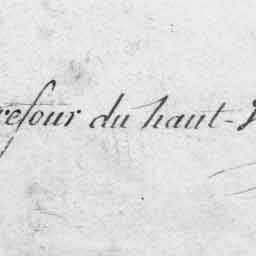 refour du haut-